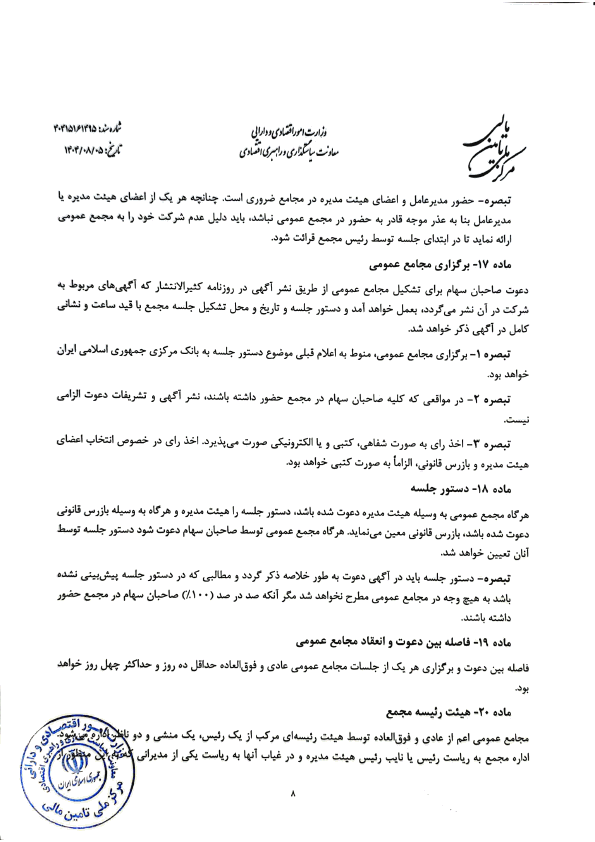 مرکز ملی تامین مالی
وزارت امور اقتصادی و دارایی
معاونت سیاستگذاری و راهبری اقتصادی
شماره سند: ۴۰۴۱۵۱۶۱۴۹۵
تاریخ: ۱۴۰۴/۰۸/۰۵
تبصره- حضور مدیرعامل و اعضای هیئت مدیره در مجامع ضروری است. چنانچه هر یک از اعضای هیئت مدیره یا
مدیرعامل بنا به عذر موجه قادر به حضور در مجمع عمومی نباشد، باید دلیل عدم شرکت خود را به مجمع عمومی
ارائه نماید تا در ابتدای جلسه توسط رئیس مجمع قرائت شود.
ماده ۱۷- برگزاری مجامع عمومی
دعوت صاحبان سهام برای تشکیل مجامع عمومی از طریق نشر آگهی در روزنامه کثیرالانتشار که آگهی‌های مربوط به
شرکت در آن نشر می‌گردد، بعمل خواهد آمد و دستور جلسه و تاریخ و محل تشکیل جلسه مجمع با قید ساعت و نشانی
کامل در آگهی ذکر خواهد شد.
تبصره ۱- برگزاری مجامع عمومی، منوط به اعلام قبلی موضوع دستور جلسه به بانک مرکزی جمهوری اسلامی ایران
خواهد بود.
تبصره ۲- در مواقعی که کلیه صاحبان سهام در مجمع حضور داشته باشند، نشر آگهی و تشریفات دعوت الزامی
نیست.
تبصره ۳- اخذ رای به صورت شفاهی، کتبی و یا الکترونیکی صورت می‌پذیرد. اخذ رای در خصوص انتخاب اعضای
هیئت مدیره و بازرس قانونی، الزاماً به صورت کتبی خواهد بود.
ماده ۱۸- دستور جلسه
هرگاه مجمع عمومی به وسیله هیئت مدیره دعوت شده باشد، دستور جلسه را هیئت مدیره و هرگاه به وسیله بازرس قانونی
دعوت شده باشد، بازرس قانونی معین می‌نماید. هرگاه مجمع عمومی توسط صاحبان سهام دعوت شود دستور جلسه توسط
آنان تعیین خواهد شد.
تبصره- دستور جلسه باید در آگهی دعوت به طور خلاصه ذکر گردد و مطالبی که در دستور جلسه پیش‌بینی نشده
باشد به هیچ وجه در مجامع عمومی مطرح نخواهد شد مگر آنکه صد در صد (۱۰۰٪) صاحبان سهام در مجمع حضور
داشته باشند.
ماده ۱۹- فاصله بین دعوت و انعقاد مجامع عمومی
فاصله بین دعوت و برگزاری هر یک از جلسات مجامع عمومی عادی و فوق‌العاده حداقل ده روز و حداکثر چهل روز خواهد
بود.
ماده ۲۰- هیئت رئیسه مجمع
مجامع عمومی اعم از عادی و فوق‌العاده توسط هیئت رئیسه‌ای مرکب از یک رئیس، یک منشی و دو ناظر اداره می‌شود.
اداره مجمع به ریاست رئیس یا نایب رئیس هیئت مدیره و در غیاب آنها به ریاست یکی از مدیرانی که به این منظور از
وزارت امور اقتصادی و دارائی
معاونت سیاستگذاری و راهبری اقتصادی
جمهوری اسلامی ایران
مرکز ملی تامین مالی
۸